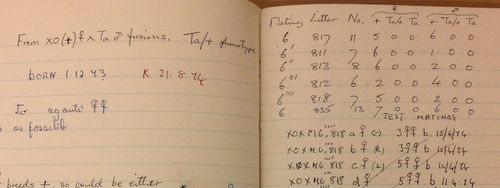 From XO(+)♀ x Ta ♂ fusions, Ta/+ phenotype
BORN 1.12.73 K. 21.8.74
to agouti ♀♀
as possible
breeds + so could be either
Mating Litter No. ♀ ♂
+ Ta/+ Ta + Ta/+ Ta
6' 817 11 5 0 0 6 0 0
6' 811 7 6 0 0 1 0 0
6'' 813 8 6 0 0 2 0 0
6''' 812 6 2 0 0 4 0 0
6'''' 818 7 5 0 0 2 0 0
6 835 13 7 0 0 6 0 0
TEST MATINGS
XO x M6'''' 818 a ♀ (-) 3♀♀ b. 15/4/74
XO x M6'''' 818 b ♀ (R) 3♀♀ b. 15/4/74
XO x M6'''' 818 c ♀ (L) 5♀♀ b. 14/4/74
XO x M6'''' 818 d ♀ 5♀♀ b. 11.4.74